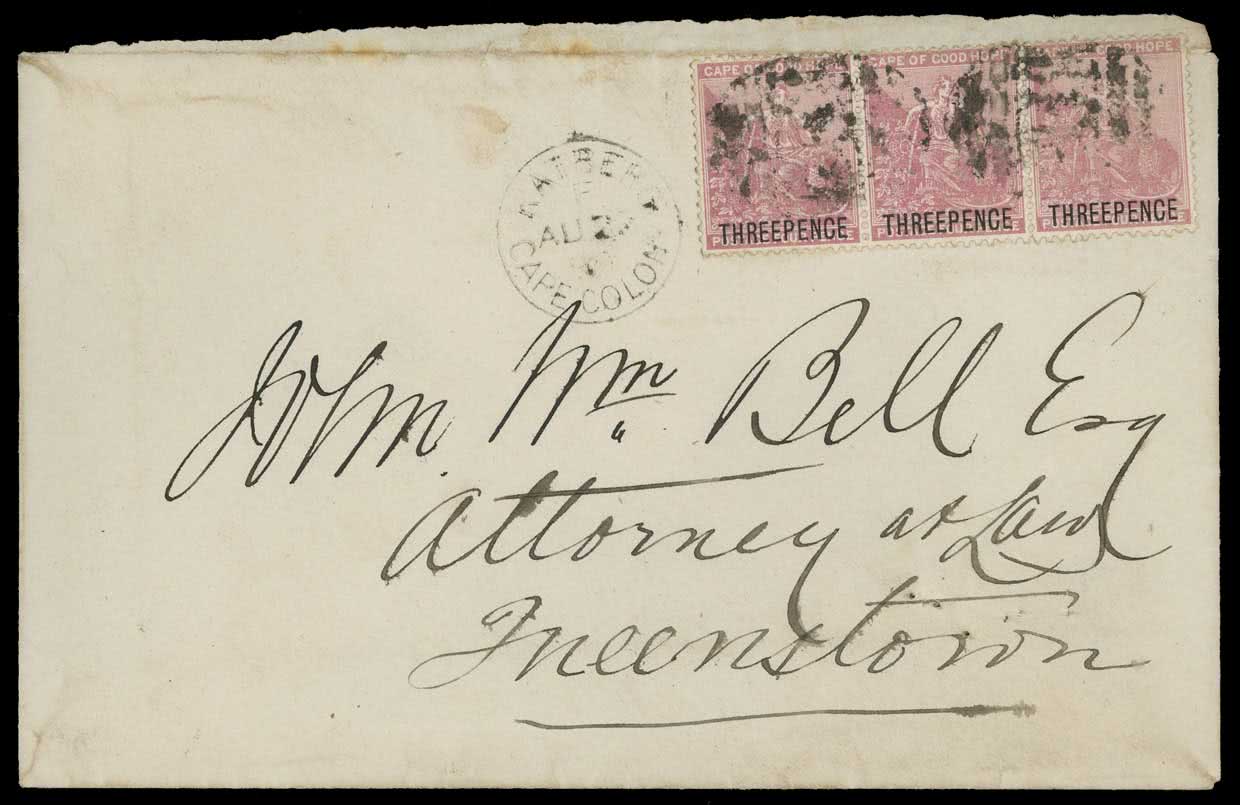 CAPE OF GOOD HOPE CAPE OF GOOD HOPE GOOD HOPE
THREEPENCE THREEPENCE THREEPENCE
KATBERG
AU 2
CAPE COLONY
John Wm. Bell Esq
Attorney at Law
Queenstown